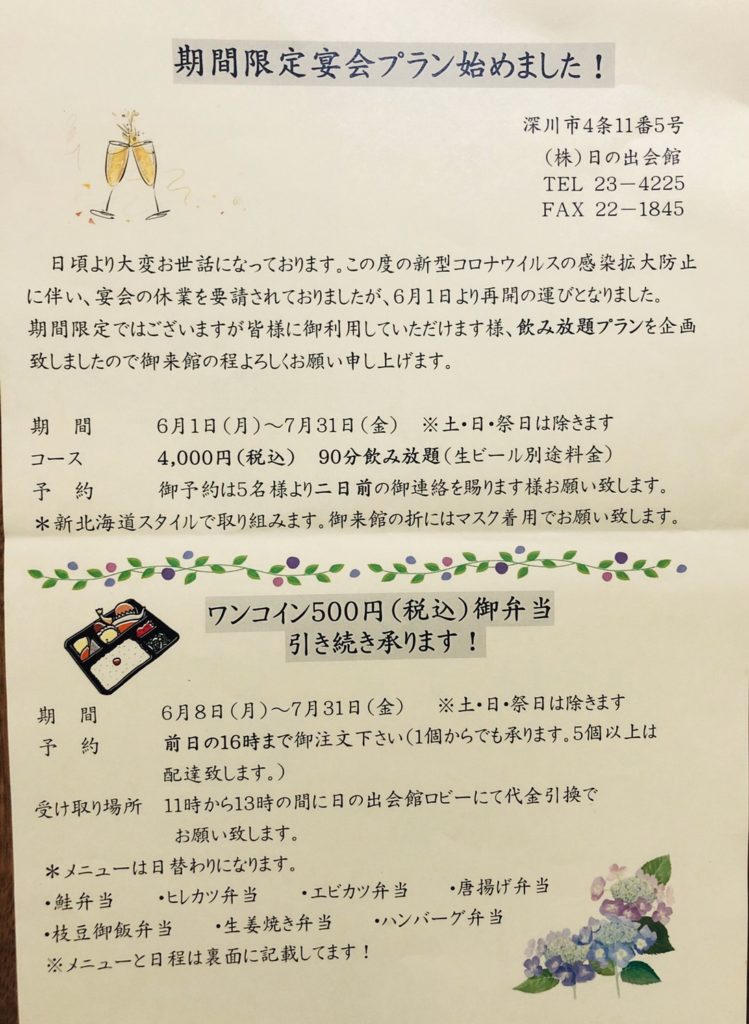 期間限定宴会プラン始めました！
深川市4条11番5号
（株）日の出会館
TEL 23－4225
FAX 22－1845
日頃より大変お世話になっております。この度の新型コロナウイルスの感染拡大防止
に伴い、宴会の休業を要請されておりましたが、6月1日より再開の運びとなりました。
期間限定ではございますが皆様に御利用していただけます様、飲み放題プランを企画
致しましたので御来館の程よろしくお願い申し上げます。
期　間　6月1日（月）～7月31日（金）　※土・日・祭日は除きます
コース　4,000円（税込）　90分飲み放題（生ビール別途料金）
予　約　御予約は5名様より二日前の御連絡を賜ります様お願い致します。
＊新北海道スタイルで取り組みます。御来館の折にはマスク着用でお願い致します。
ワンコイン500円（税込）御弁当
引き続き承ります！
期　間　6月8日（月）～7月31日（金）　※土・日・祭日は除きます
予　約　前日の16時まで御注文下さい（1個からでも承ります。5個以上は
配達致します。）
受け取り場所　11時から13時の間に日の出会館ロビーにて代金引換で
お願い致します。
＊メニューは日替わりになります。
・鮭弁当　・ヒレカツ弁当　・エビカツ弁当　・唐揚げ弁当
・枝豆御飯弁当　・生姜焼き弁当　・ハンバーグ弁当
※メニューと日程は裏面に記載してます！